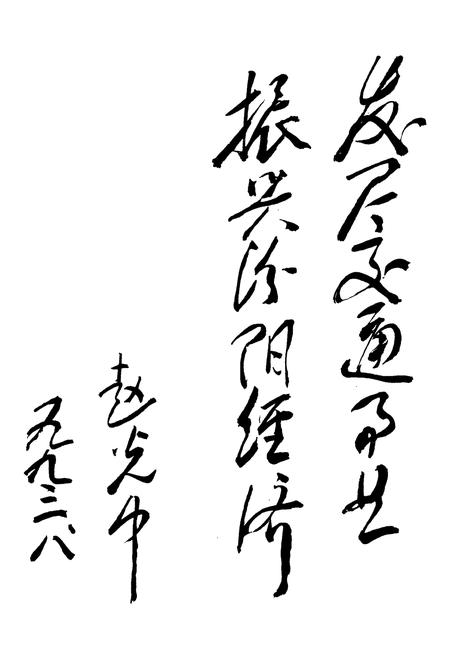 发展交通事业
振兴汾阴经济
赵光中
九九三、八